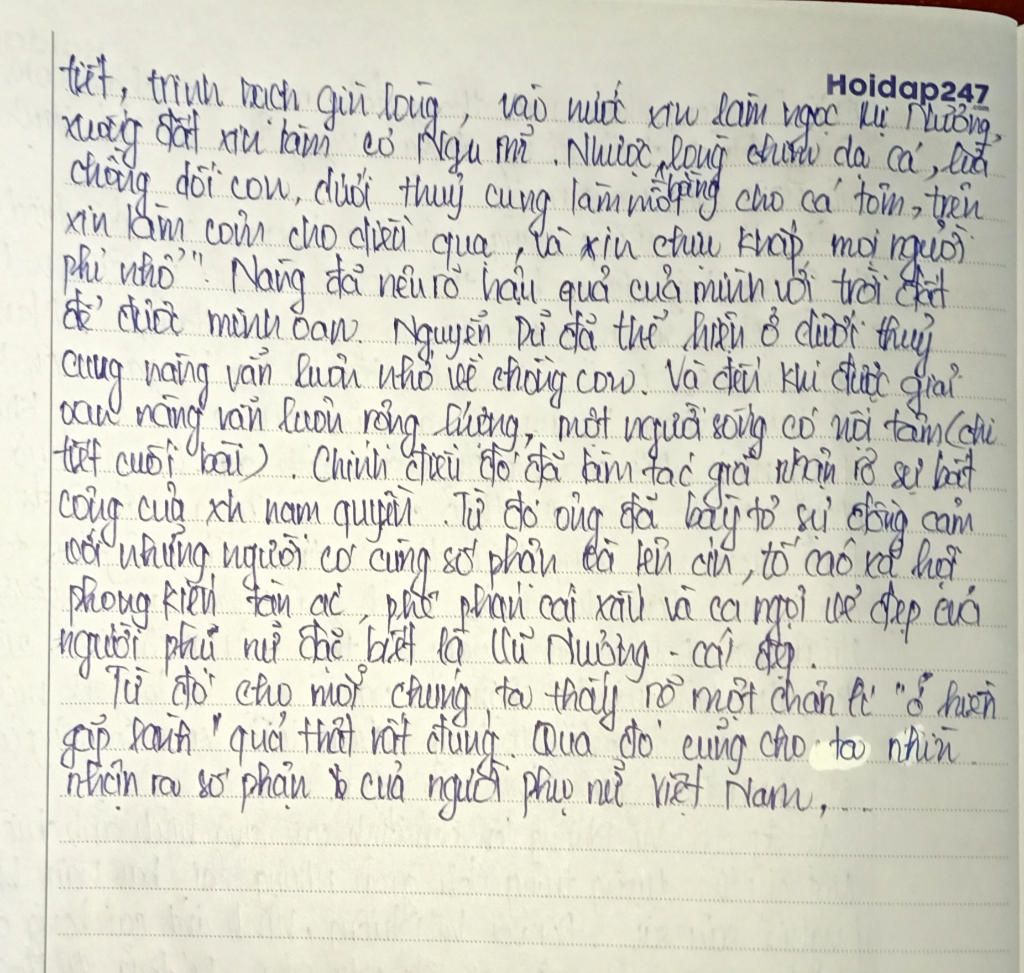 Hoidap247
tiết, trinh bạch gìn lòng, vào nước xin làm ngọc Mị Nương,
xuống đất xin làm cỏ Ngu mĩ. Nhược lòng chim dạ cá, lừa
chồng dối con, dưới thuỷ cung làm mồi cho cá tôm, trên
xin làm cơm cho diều quạ, và xin chịu khắp mọi người
phỉ nhổ". Nàng đã nêu rõ hậu quả của mình với trời đất
để được minh oan. Nguyễn Dữ đã thể hiện ở dưới thuỷ
cung nàng vẫn luôn nhớ về chồng con. Và đến khi được giải
oan nàng vẫn luôn rộng lượng, một người sống có nội tâm (chi
tiết cuối bài). Chính điều đó đã làm tác giả nhận rõ sự bất
công của xh nam quyền. Từ đó ông đã bày tỏ sự đồng cảm
với những người có cùng số phận và lên án, tố cáo xã hội
phong kiến tàn ác, phê phán cái xấu và ca ngợi vẻ đẹp của
người phụ nữ đặc biệt là Vũ Nương - cái đẹp.
Từ đó cho mỗi chúng ta thấy rõ một chân lí "ở hiền
gặp lành" quả thật rất đúng. Qua đó cũng cho ta nhìn
nhận ra số phận của người phụ nữ Việt Nam, ...